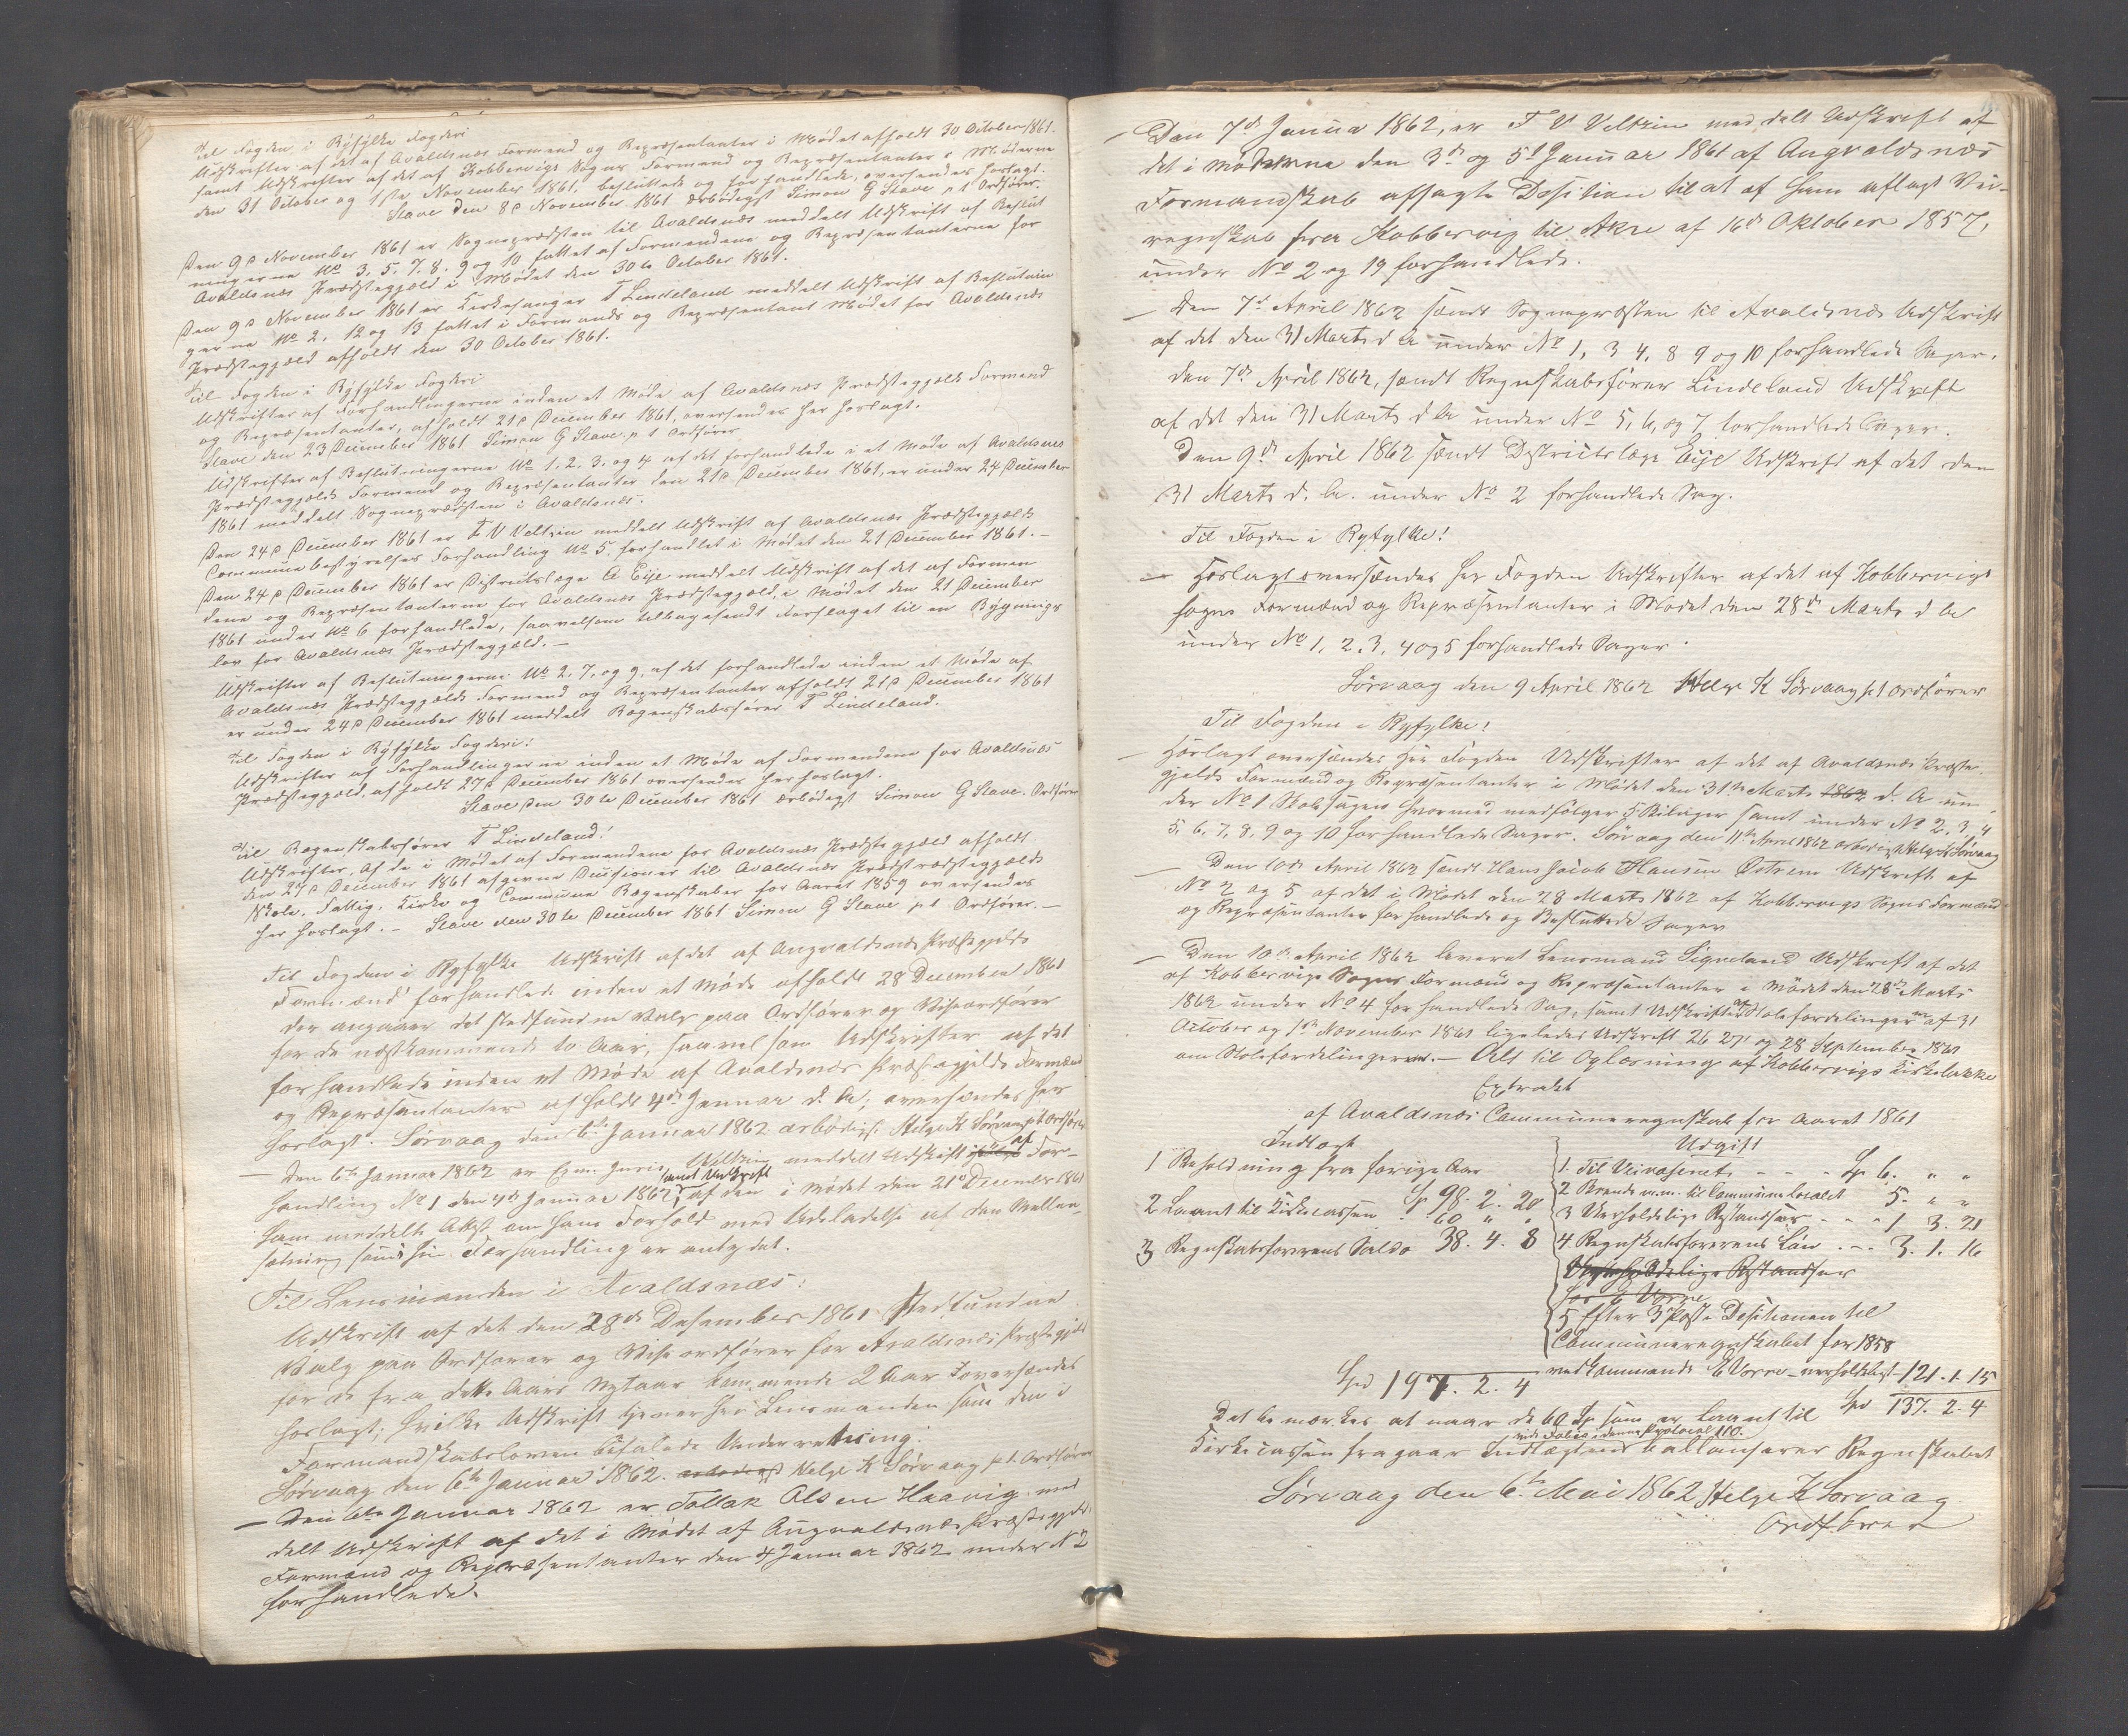 Til Fogden i Ryfylke Fogderi
Udskrifter af det af Avaldsnæs Formænd og Repræsentanter i Mødet afholdt 30 October 1861.
samt Udskrifter af det af Kobbervigs Sogns Formænd og Repræsentanter i Møderne
den 31 October og 1ste November 1861, besluttede og forhandlede, oversendes hoslagt.
Stave den 8de November 1861 ærbødigst Simon G Stave p.t. Ordfører.
Den 9de November 1861 er Sognepræsten til Avaldsnæs meddelt Udskrift af Beslut
ningerne No 3. 5. 7. 8. 9 og 10 fattet af Formændene og Repræsentanterne for
Avaldsnæs Præstegjæld i Mødet den 30te October 1861.
Den 9de November 1861 er Kirkesanger T Lindeland meddelt Udskrift af Beslutnin
gerne No 2. 12 og 13 fattet i Formands og Repræsentant Mødet for Avaldsnæs
Præstegjæld afholdt den 30 October 1861.
Til Fogden i Ryfylke Fogderi
Udskrifter af Forhandlingerne inden et Møde af Avaldsnæs Præstegjælds Formænd
og Repræsentanter, afholdt 21de December 1861, oversendes her hoslagt.
Stave den 23 December 1861 Simon G Stave p t Ordfører
Udskrifter af Beslutningerne No 1. 2. 3. og 4 af det forhandlede i et Møde af Avaldsnæs
Præstegjælds Formænd og Repræsentanter den 21de December 1861, er under 24 December
1861 meddelt Sognepræsten i Avaldsnæs.
Den 24de December 1861 er F V Veltzin meddelt Udskrift af Avaldsnæs Præstegjælds
Communebestyrelses Forhandling No 5. forhandlet i Mødet den 21 December 1861. —
Den 24de December 1861 er Districtslæge A Eije meddelt Udskrift af det af Formæn
dene og Repræsentanterne for Avaldsnæs Præstegjæld, i Mødet den 21 December
1861 under No 6 forhandlede, saavelsom tilbagesendt Forslaget til en Bygnings
lov for Avaldsnæs Præstegjæld. —
Udskrifter af Beslutningerne No 2. 7. og 9. af det forhandlede inden et Møde af
Avaldsnæs Præstegjælds Formænd og Repræsentanter afholdt 21de December 1861
er under 24de December 1861 meddelt Regnskabsfører T Lindeland.
Til Fogden i Ryfylke Fogderi!
Udskrifter af Forhandlingerne inden et Møde af Formændene for Avaldsnæs
Præstegjæld, afholdt 27de December 1861 oversendes her hoslagt.
Stave den 30te December 1861 ærbødigst Simon G Stave. Ordfører
Til Regnskabsfører T Lindeland!
Udskrifter, af de i Mødet af Formændene for Avaldsnæs Præstegjæld afholdt
den 27de December 1861 afgivne Decisioner til Avaldsnæs Præstegjælds
Skole, Fattig, Kirke og Commune Regnskaber for Aaret 1859 oversendes
her hoslagt. — Stave den 30te December 1861 Simon G Stave p t Ordfører. —
Til Fogden i Ryfylke Udskrift af det af Augvaldsnæs Præstegjelds
Formænd forhandlede inden et Møde afholdt 28 December 1861
der angaaer det stedfundne Valg paa Ordfører og Viseordfører
for de næstkommende to Aar, saavelsom Udskrifter af det
forhandlede inden et Møde af Avaldsnæs Præstegjelds Formænd
og Repræsentanter afholdt 4de Januar d. A; oversendes her
hoslagt. Sörvaag den 6te Januar 1862 ærbødigst Helge K Sörvaag pt Ordfører
— Den 6te Januar 1862 er Exam. Juris Weltzin meddelt Udskrift af For-
handling No 1 den 4de Januar 1862, samt Udskrift af den i Mødet den 21de December 1861
ham meddelte Attest om hans Forhold med Udeladelse af den Mellem-
sætning som hin Forhandling er antydet.
Til Lensmanden i Avaldsnæs:
Udskrift af det den 28de Desember 1861 stedfundne
Valg paa Ordfører og Viseordfører for Avaldsnæs Præstegjæld
for de fra dette Aars Nytaar kommende 2 Aar oversendes
hoslagt; hvilke Udskrift tjener Hr Lensmanden som den i
Formandskabsloven befalede Underretning.
Sörvaag den 6te Januar 1862. ærbødigst Helge K Sörvaag p.t. Ordfører
— Den 6te Januar 1862 er Tollak Olsen Haavig med
delt Udskrift af det i Mødet af Augvaldsnæs Præstegjelds
Formænd og Repræsentanter den 4 Januar 1862 under N 2
forhandlede.
— Den 7de Januar 1862, er F V Veltzin meddelt Udskrift af
det i Møderne den 3de og 5te Januar 1861 af Augvaldsnæs
Formandskab affagte Desition til at af ham aflagt Vei-
regnskab fra Kobbervig til Akre af 16de Oktober 1857,
under No 2 og 19 forhandlede.
— Den 7de April 1862 sendt Sognepræsten til Avaldsnæs Udskrift
af det den 31 Marts d A under No 1, 3 4, 8 9 og 10 forhandlede Sager.
Den 7de April 1862, sendt Regnskabsfører Lindeland Udskrift
af det den 31 Marts d A under No 5, 6, og 7 forhandlede Sager.
Den 9de April 1862 sendt Destrictslæge Eije Udskrift af det den
31 Marts d. A. under No 2 forhandlede Sag.
Til Fogden i Ryfylke!
— Hoslagt oversendes Hr Fogden Udskrifter af det af Kobbervigs
Sogns Formænd og Repræsentanter i Mødet den 28de Marts d A
under No 1, 2. 3, 4 og 5 forhandlede Sager.
Sörvaag den 9 April 1862 Helge K Sörvaag p t ordfører
Til Fogden i Ryfylke!
— Hoslagt oversendes Her Fogden Udskrifter af det af Avaldsnæs Præste
gjelds Formænd og Repræsentanter i Mødet den 31te Marts 1862 d. A un
der No 1 Skolesagen hvormed medfølger 5 Bilager samt under No 2, 3, 4
5, 6, 7, 8, 9 og 10 forhandlede Sager. Sörvaag den 11te April 1862 ærbødigst Helge K Sörvaag
— Den 10de April 1862 sendt Hans Jacob Hansen Østrem Udskrift af
No 2 og 5 af det i Mødet den 28 Marts 1862 af Kobbervigs Sogns Formænd
og Repræsentanter forhandlede og Besluttede Sager
— Den 10de April 1862 leveret Lensmand Signeland Udskrift af det
af Kobbervigs Sogns Formænd og Repræsentanter i Mødet den 28de Marts
1862 under No 4 forhandlede Sag, samt Udskrifter af Stolefordelingerne af 31
October og 1ste November 1861 ligeledes Udskrift 26 27 og 28 September 1861
om Stolefordelingerne. — Alt til Oplæsning af Kobbervigs Kirkebakke
Extrakt
af Avaldsnæs Communeregnskab for Aaret 1861
Indtægt
1 Beholdning fra forige Aar
Sp 98. 2. 20
2 Laant til Kirkecassen . . 60 " "
3 Regnskabsførerens Saldo 38. 4. 8
Spd 197. 2. 4
Udgift
1. Til Veivæsenet, - - - Sp 6. " "
2 Brænde m.m. til Communelocalet 5. " "
3 Uerholdelige Restandser - - - 1 3. 21
4 Regnskabsførerens Løn . - . 3. 1. 16
Uerholdelige Restandser
for E Vorre
5 Efter 3 Post i Desitionen til
Communeregnskabet for 1858
vedkommende E Vorre — uerholdeligt — 121. 1. 15
Spd 137. 2. 4
Det bemærkes at naar de 60 Sp som er Laant til
Kirkecassen fragaar Indtægten vide Folio i denne Protocol 110. ballanserer Regnskabet
Sörvaag den 6te Mai 1862 Helge K Sörvaag
Ordfører